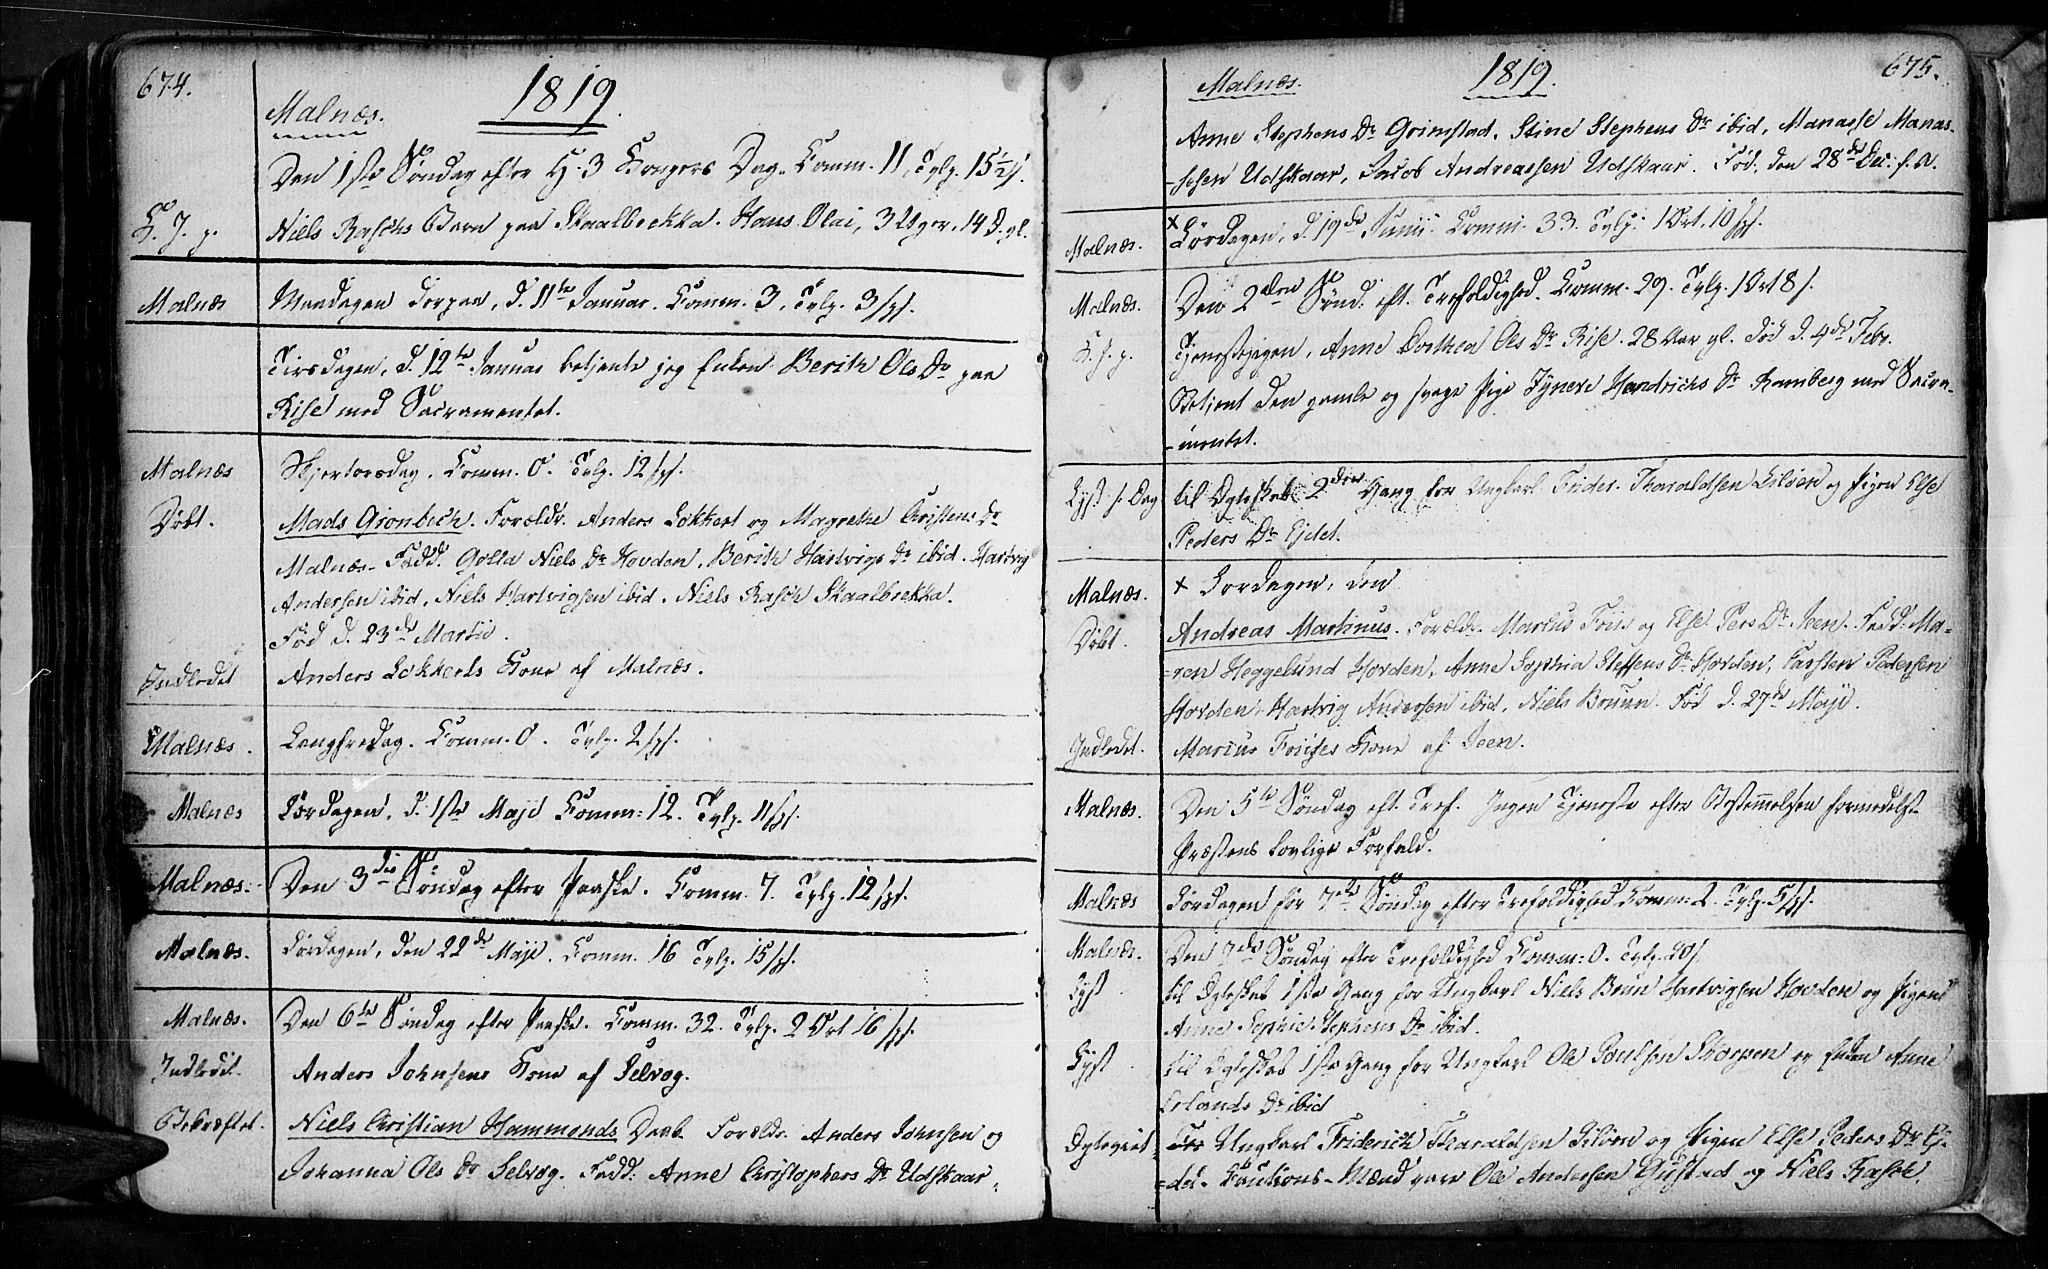 674.
1819.
Malnæs.
Den 1ste Søndag efter H. 3 Kongers Dag. Komm. 11, Tvlg. 15½ s.
K. J. p. Niels Raschs Barn paa Skaalbrekka. Hans Olai, 3 Uger, 14 D. gl.
Malnæs Mandagen derpaa, d. 11te Januar. Komm. 3, Tvlg. 3 sps.
Tirsdagen, d. 12te Januar betjente jeg Enken Berith Ols Dr paa
Rise med Sacramentet.
Malnæs Skjertorsdag. Komm. 0. Tvlg. 12 sps.
Døbt. Mads Gronbech. Forældr. Anders Lokkert og Magrethe Cristens Dr
Malnæs. Fadd. Golla Niels Dr Hovden, Berith Hartvigs Dr ibid. Hartvig
Andersen ibid, Niels Hartvigsen ibid. Niels Rasch Skaalbrekka.
Fød d. 23de Martii.
Indledet Anders Lokkerts Kone af Malnæs.
Malnæs. Langfredag. Komm. 0. Tvlg. 2 sps.
Malnæs Lørdagen, d. 1ste Maji Komm: 12. Tvlg. 11 sps.
Malnæs. Den 3die Søndag efter Paaske. Komm. 7. Tvlg. 12 sps.
Malnæs. Lørdagen, den 22de Maji. Komm. 16 Tvlg. 15 sps.
Malnæs. Den 6te Søndag efter Paaske. Komm. 32. Tvlg. 2 Ort 16 sps.
Indledet. Anders Johnsens Kone af Selvog.
Bekræftet. Niels Christian Hammonds Daab. Forældr. Anders Johnsen og
Johanna Ols Dr Selvog. Fadd: Anne Christophers Dr Udskaar,
675.
Malnæs. 1819.
Anne Stephens Dr Grimstad, Stine Stephens Dr ibid, Manasse Manas-
-sesen Udskaar, Jacob Andreassen Udskaar. Fød, den 28de Dec. f. A.
Malnæs. x Lørdagen, d. 19de Junii. Komm. 33. Tvlg. 1 Ort, 10 sps.
Malnæs. Den 2den Sønd. eft. Trefoldighed. Komm. 29. Tvlg. 1 Ort 8 s.
K. J. p. Tjenestepigen, Anne Dorthea Ols Dr Rise. 28 Aar gl. død d. 4de Febr.
Betjent den gamle og svage Pige Zynere Hendrichs Dr Ramberg med Sacra-
-mentet.
Lyst s. Dag til Ægteskab 2den Gang for Ungkarl Frider. Tharaldsen Liløen og Pigen Else
Peders Dr Ejdet.
Malnæs. x Lørdagen, den
Døbt. Andreas Martinus. Forældr. Marcus Friis og Else Pers Dr Steen. Fadd: Ma-
=ren Heggelund Hovden, Anne Sophia Steffens Dr Hovden, Carsten Pedersen
Hovden, Hartvig Andersen ibid, Niels Bruun. Fød d. 27de Maji.
Indledet. Marcus Friises Kone af Steen.
Malnæs. Den 5te Søndag eft. Tref. Ingen Tjeneste efter Bestemmelsen formedelst
Præstens lovlige Forfald.
Malnæs Lørdagen før 7de Søndag efter Trefoldighed Komm: 2. Tvlg. 5 sps.
Malnæs. Den 7de Søndag efter Trefoldighed Komm: 0. Tvlg. 20 s.
Lyst til Ægteskab 1ste Gang for Ungkarl Niels Brun Hartvigsen Hovden og Pigen
Anne Sophie Stephens Dr ibid.
Lyst til Ægteskab 1ste Gang for Ungkarl Ole Poulsen Skorpen og Enken Anne
Erlands Dr ibid
Ægteviet Ungkarl Friderich Tharaldsen Liløen og Pigen Else Peders Dr Ej-
=det. Cautions-Mænd vare Ole Andersen Gustad og Niels Rasch.